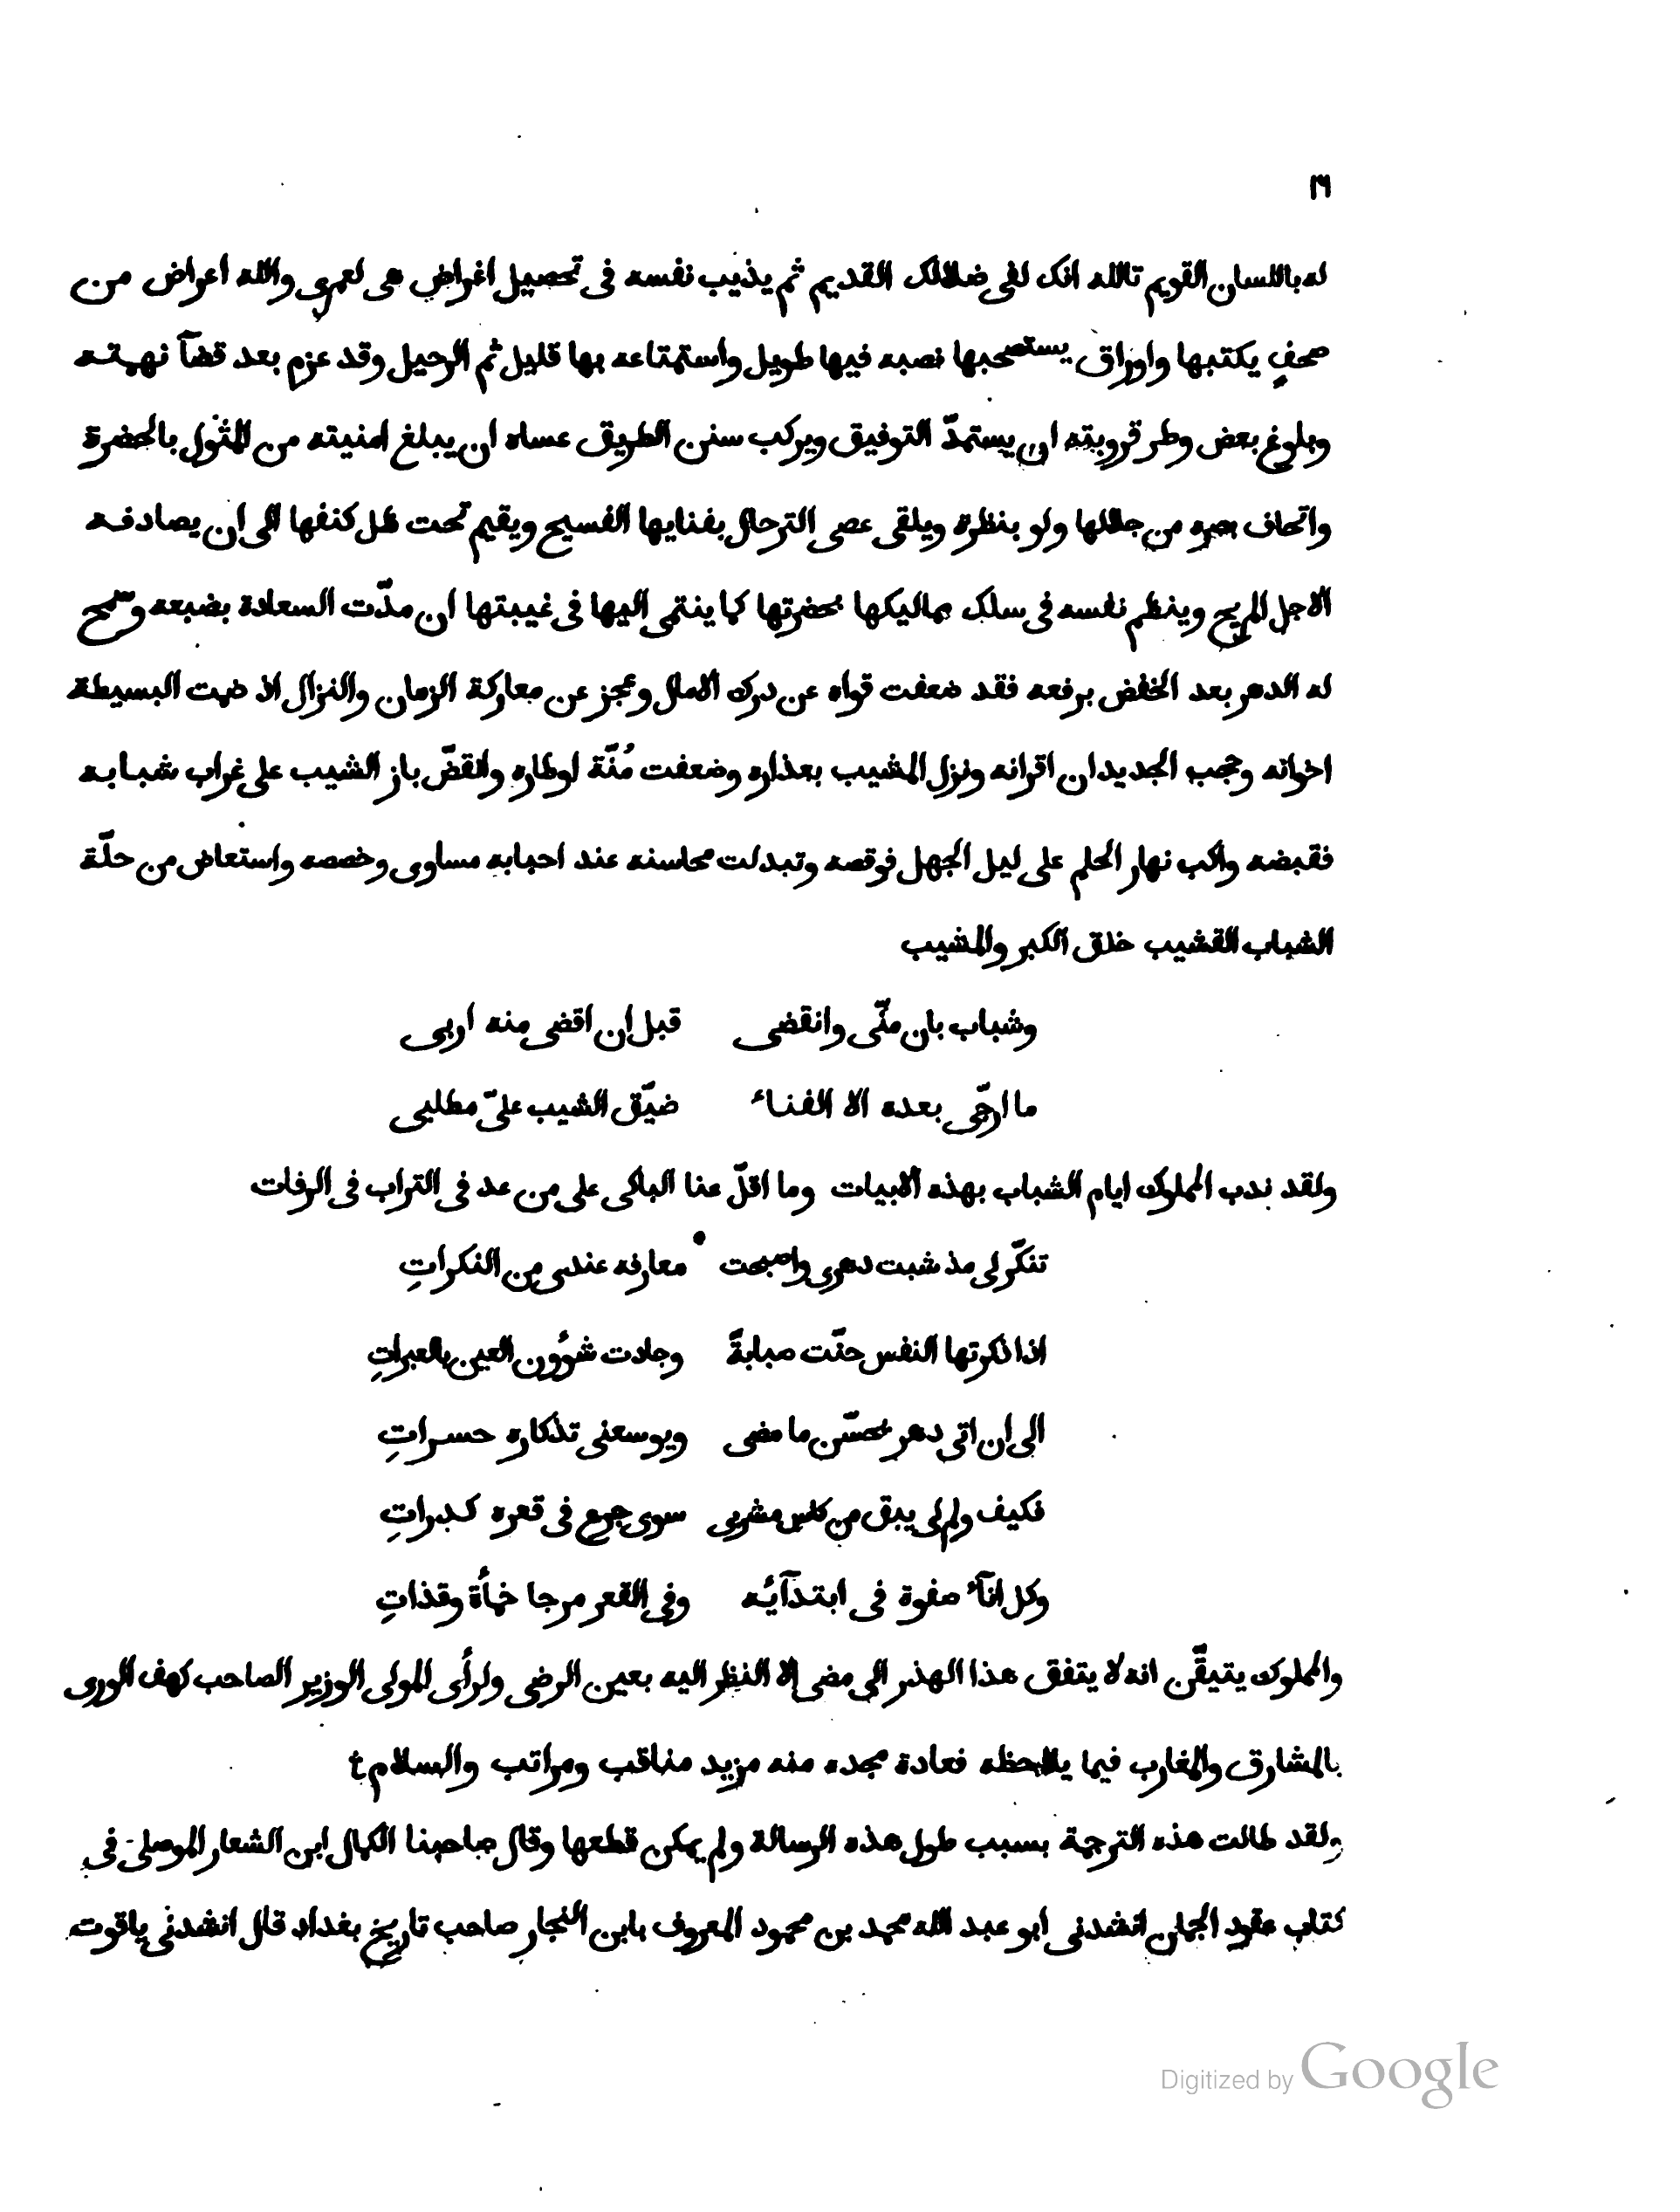 ٢٦
له باللسان القويم تالله انك لفى ضلالك القديم ثم يذيب نفسه فى تحصيل اغراض هى لعمرى والله اعراض من
صحفٍ يكتبها واوراق يستصحبها نصبه فيها طويل واستمتاعه بها قليل ثم الرحيل وقد عزم بعد قضآ نهمته
وبلوغ بعض وطر قروبته ان يستمدّ التوفيق ويركب سنن الطريق عساه ان يبلغ امنيته من المثول بالحضرة
واتحاف بصره من جلالها ولو بنظرة ويلقى عصى الترحال بفنايها الفسيح ويقيم تحت ظل كنفها الى ان يصادفه
الاجل المريح وينظم نفسه فى سلك مماليكها بحضرتها كما ينتمى اليها فى غيبتها ان مدّت السعادة بضبعه وسمح
له الدهر بعد الخفض برفعه فقد ضعفت قواه عن درك الامال وعجز عن معاركة الزمان والنزال اذ ضمت البسيطة
اخوانه وحجب الجديدان اقرانه ونزل المشيب بعذاره وضعفت مُنّة اوطاره وانقضّ باز الشيب على غراب شبابه
فقبضه واكب نهار الحلم على ليل الجهل فوقصه وتبدلت محاسنه عند احبابه مساوى وخصصه واستعاض من حلّة
الشباب القشيب خلق الكبر والمشيب
وشباب بان منّى وانقضى قبل ان اقضى منه اربى
ما ارجّى بعده الا الفناء ضيّق الشيب علىّ مطلبى
ولقد ندب المملوك ايام الشباب بهذه الابيات وما اقلّ عنا الباكى على من عد فى التراب فى الرفات
تنكّر لى مذ شبت دهرى واصبحت معارفه عندى من النكراتِ
اذا ذكرتها النفس حنّت صبابةً وجادت شؤُون العين بالعبراتِ
الى ان اتى دهر يحسّن ما مضى ويوسعنى تذكاره حسراتِ
فكيف ولم لى يبق من كاس مشربى سوى جرع فى قعره كدراتِ
وكل انآء صفوة فى ابتدآئه وفى القعر مرجا حمأة وقذاتِ
والمملوك يتيقّن انه لا يتفق هذا الهذر الى مضى الا النظر اليه بعين الرضى ولرأى المولى الوزير الصاحب كهف الورى
بالمشارق والمغارب فيما يلاحظه فعادة مجده منه مزيد مناقب ومراتب والسلام
ولقد طالت هذه الترجمة بسبب طول هذه الرسالة ولم يمكن قطعها وقال صاحبنا الكمال ابن الشعار الموصلى فى
كتاب عقود الجمان انشدنى ابو عبد الله محمد بن محمود المعروف بابن النجار صاحب تاريخ بغداد قال انشدنى ياقوت
Digitized by Google